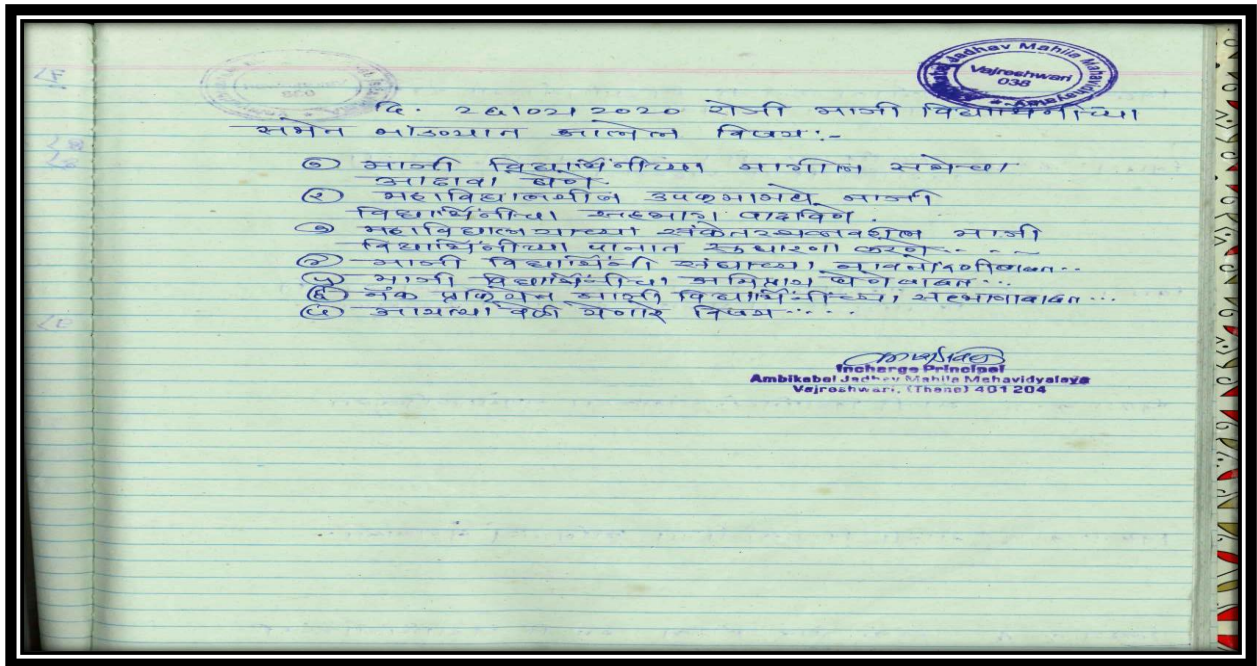 Ambikabai Jadhav Mahila Mahavidyalaya
Vajreshwari
038
दि. २६।०२।२०२० रोजी माजी विद्यार्थिनींच्या
सभेत मांडण्यात आलेले विषय:-
१ माजी विद्यार्थिनींच्या मागील सभेचा
आढावा घेणे
२ महाविद्यालयीन उपक्रमामध्ये माजी
विद्यार्थिनींचा सहभाग वाढविणे.
३ महाविद्यालयाच्या संकेतस्थळावरील माजी
विद्यार्थिनींच्या पानात सुधारणा करणे....
४ माजी विद्यार्थिनी संघाच्या नावनोंदणीबाबत...
५ माजी विद्यार्थिनींचा अभिप्राय घेणेबाबत...
६ नॅक प्रक्रियेत माजी विद्यार्थिनींच्या सहभागाबाबत...
७ आयत्या वेळी येणारे विषय.....
Incharge Principal
Ambikabai Jadhav Mahila Mahavidyalaya
Vajreshwari, (Thane) 401 204